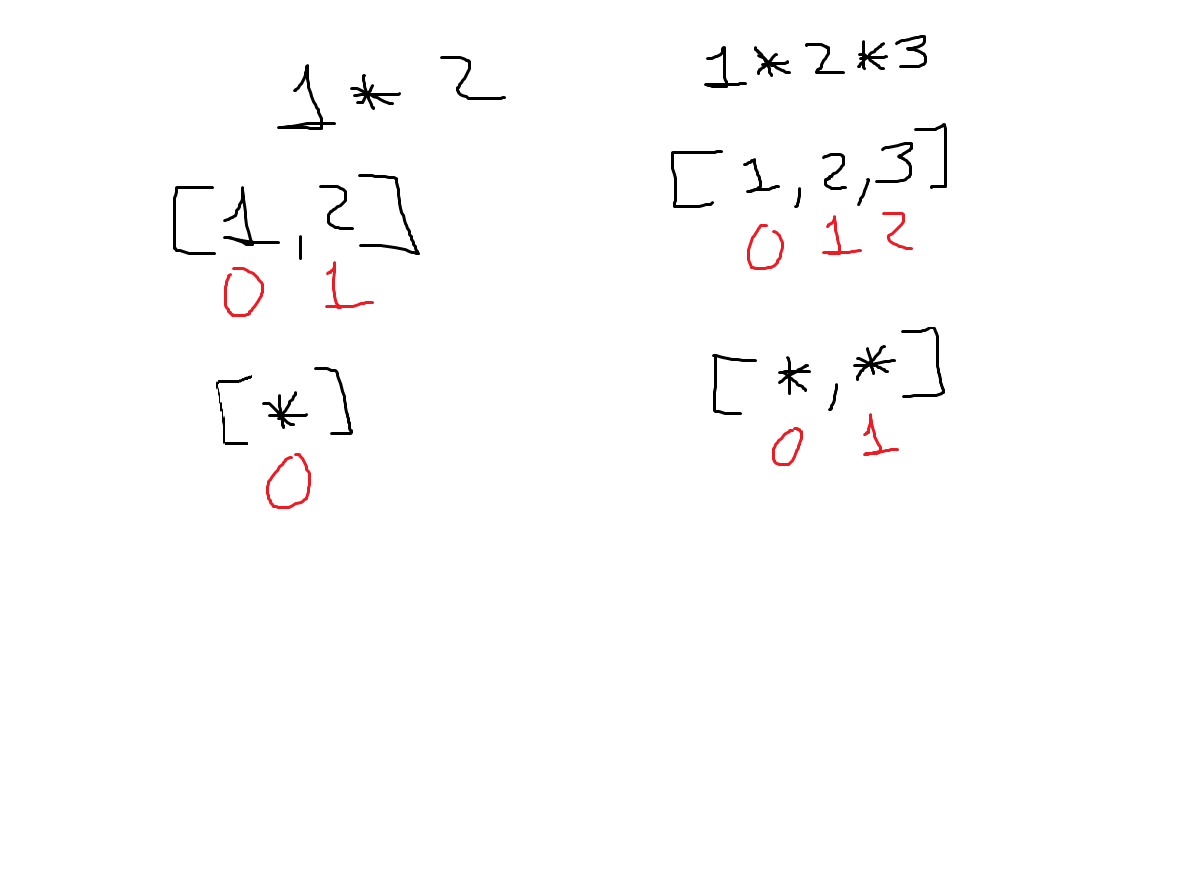 1 * 2
[1, 2]
0 1
[*]
0
1*2*3
[1, 2, 3]
0 1 2
[*, *]
0 1